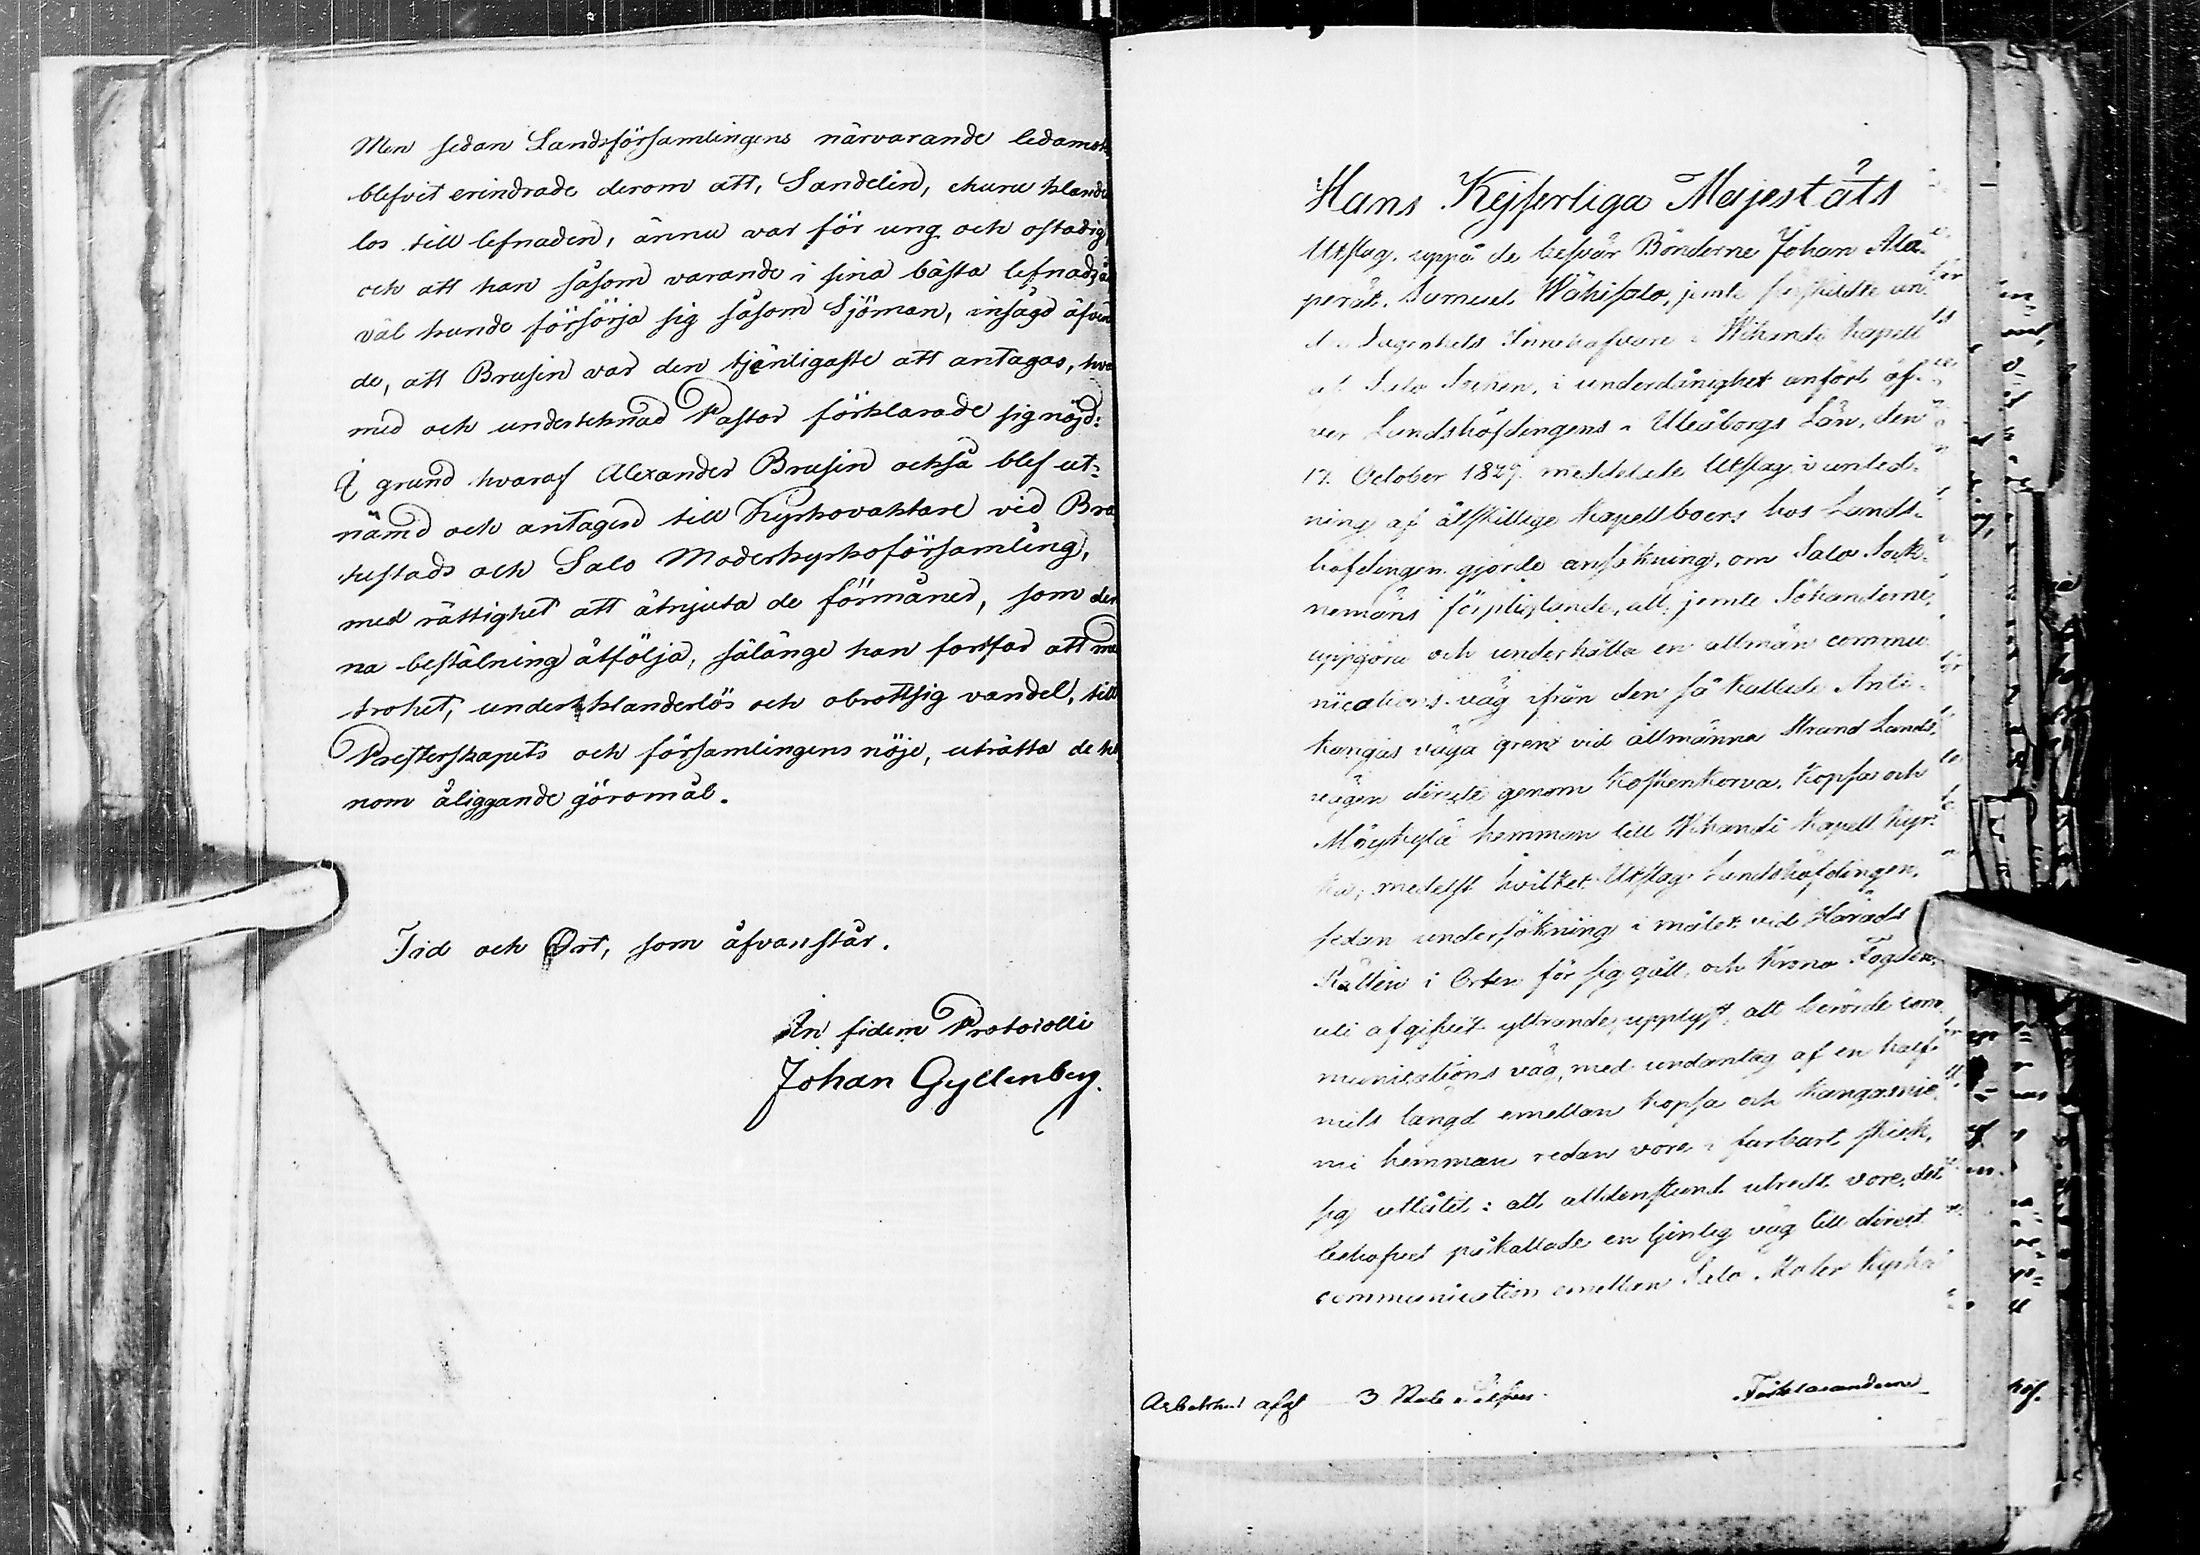 Men sedan Landsförsamlingens närvarande ledamöt
blefvit erindrade derom att, Sandelin, ehuru klander
lös till lefnaden, ännu var för ung och ostadig,
och att han såsom varande i sina bästa lefnads år
väl kunde försörja sig såsom Sjöman, insågo äfven
de, att Brusin var den tjenligaste att antagas, hvar
med och undertecknad Pastor förklarade sig nöjd:
I grund hvaraf Alexander Brusin också blef ut-
nämd och antagen till Kyrkovaktare vid Bra
hestads och Salo Moderkyrkoförsamling,
med rättighet att åtnjuta de förmåner, som den
na beställning åtfölja, sålänge han fortfar att med
trohet, under klanderlös och obrottslig vandel, till
Presterskapets och församlingens nöje, uträtta de ho
nom åliggande göromål.
Tid och Ort, som åfvanstår.
In fidem Protocolli
Johan Gyllenberg.
Hans Kejserliga Majestäts
Utslag, uppå de besvär Bönderne Johan Ala-
perät, Samuel Wähisalo, jemte särskildte an-
dre Lägenhets Innehafvare i Wihandi Kapell
af Salo Socken, i underdånighet anfört öf-
ver Landshöfdingens i Uleåborgs Län, den
17. October 1829. meddelade Utslag, i anled-
ning af åtskillige Kapellboers hos Lands-
höfdingen gjorde ansökning, om Salo Sock-
nemäns förpligtande, att, jemte Sökanderne,
uppgöra och underhålla en allmän commu-
nications väg ifrån den så kallade Anti-
kangas väga gren vid allmänna Strand Lands-
vägen directe genom Koskenkorva, Kopsa och
Möykylä hemman till Wihandi Kapell Kyr-
ka; medelst hvilket Utslag Landshöfdingen,
sedan undersökning i målet vid Härads
Rätten i Orten för sig gått, och Krono Fogden,
uti afgifvit yttrande, upplyst, att berörde com-
munications väg, med undantag af en half
mils längd emellan Kopsa och Kangasnie-
mi hemman redan vore i farbart skick,
sig utlåtit: att alldenstund utredt vore, det
behofvet påkallade en tjenlig väg till direct
communication emellan Salo Moder Kyrka
3
Förklaranderne